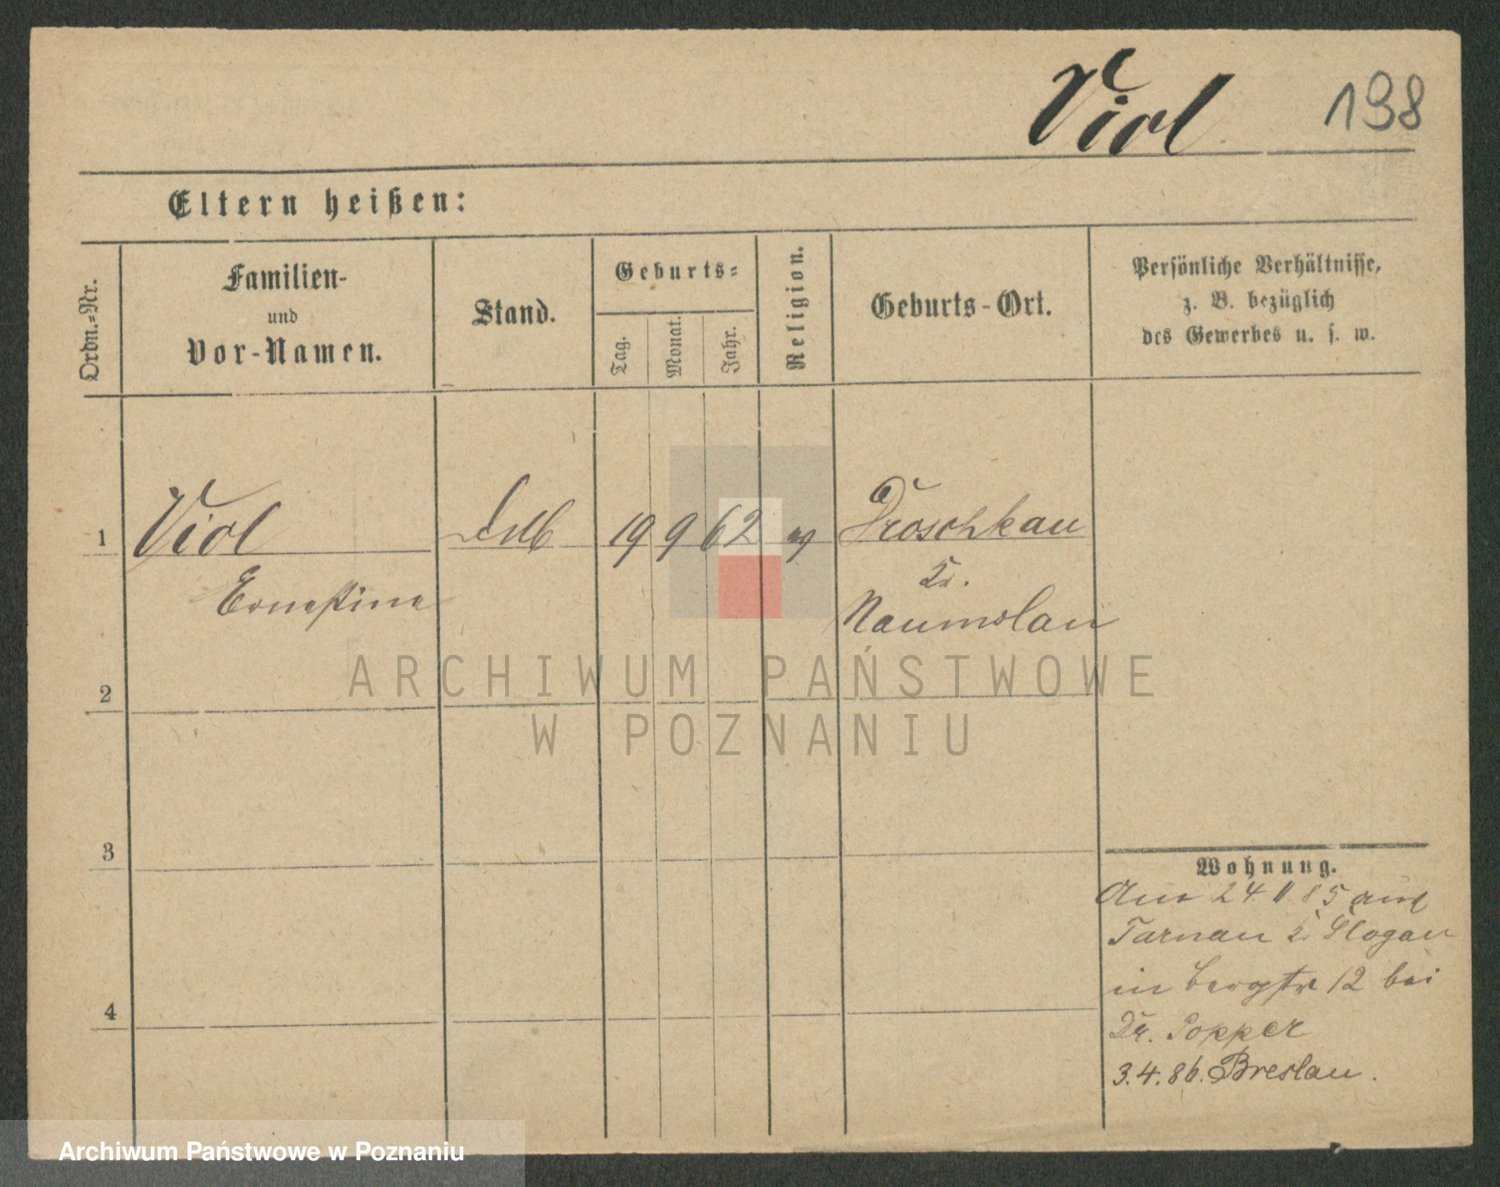 Viol 138
Eltern heißen:
Ordn.-Nr.
Familien-
und
Vor-Namen.
Stand.
Geburts-
Tag.
Monat.
Jahr.
Religion.
Geburts-Ort.
Persönliche Verhältnisse,
z. B. bezüglich
des Gewerbes u. s. w.
1 Viol 19 9 62 Droschkau
Ernestine Kr.
Namslau
2
3
4
Wohnung.
Am 24 11 85 aus
Tarnau Kr. Glogau
in Bergstr 12 bei
Dr. Popper
3.4.86. Breslau.
ARCHIWUM PAŃSTWOWE
W POZNANIU
Archiwum Państwowe w Poznaniu